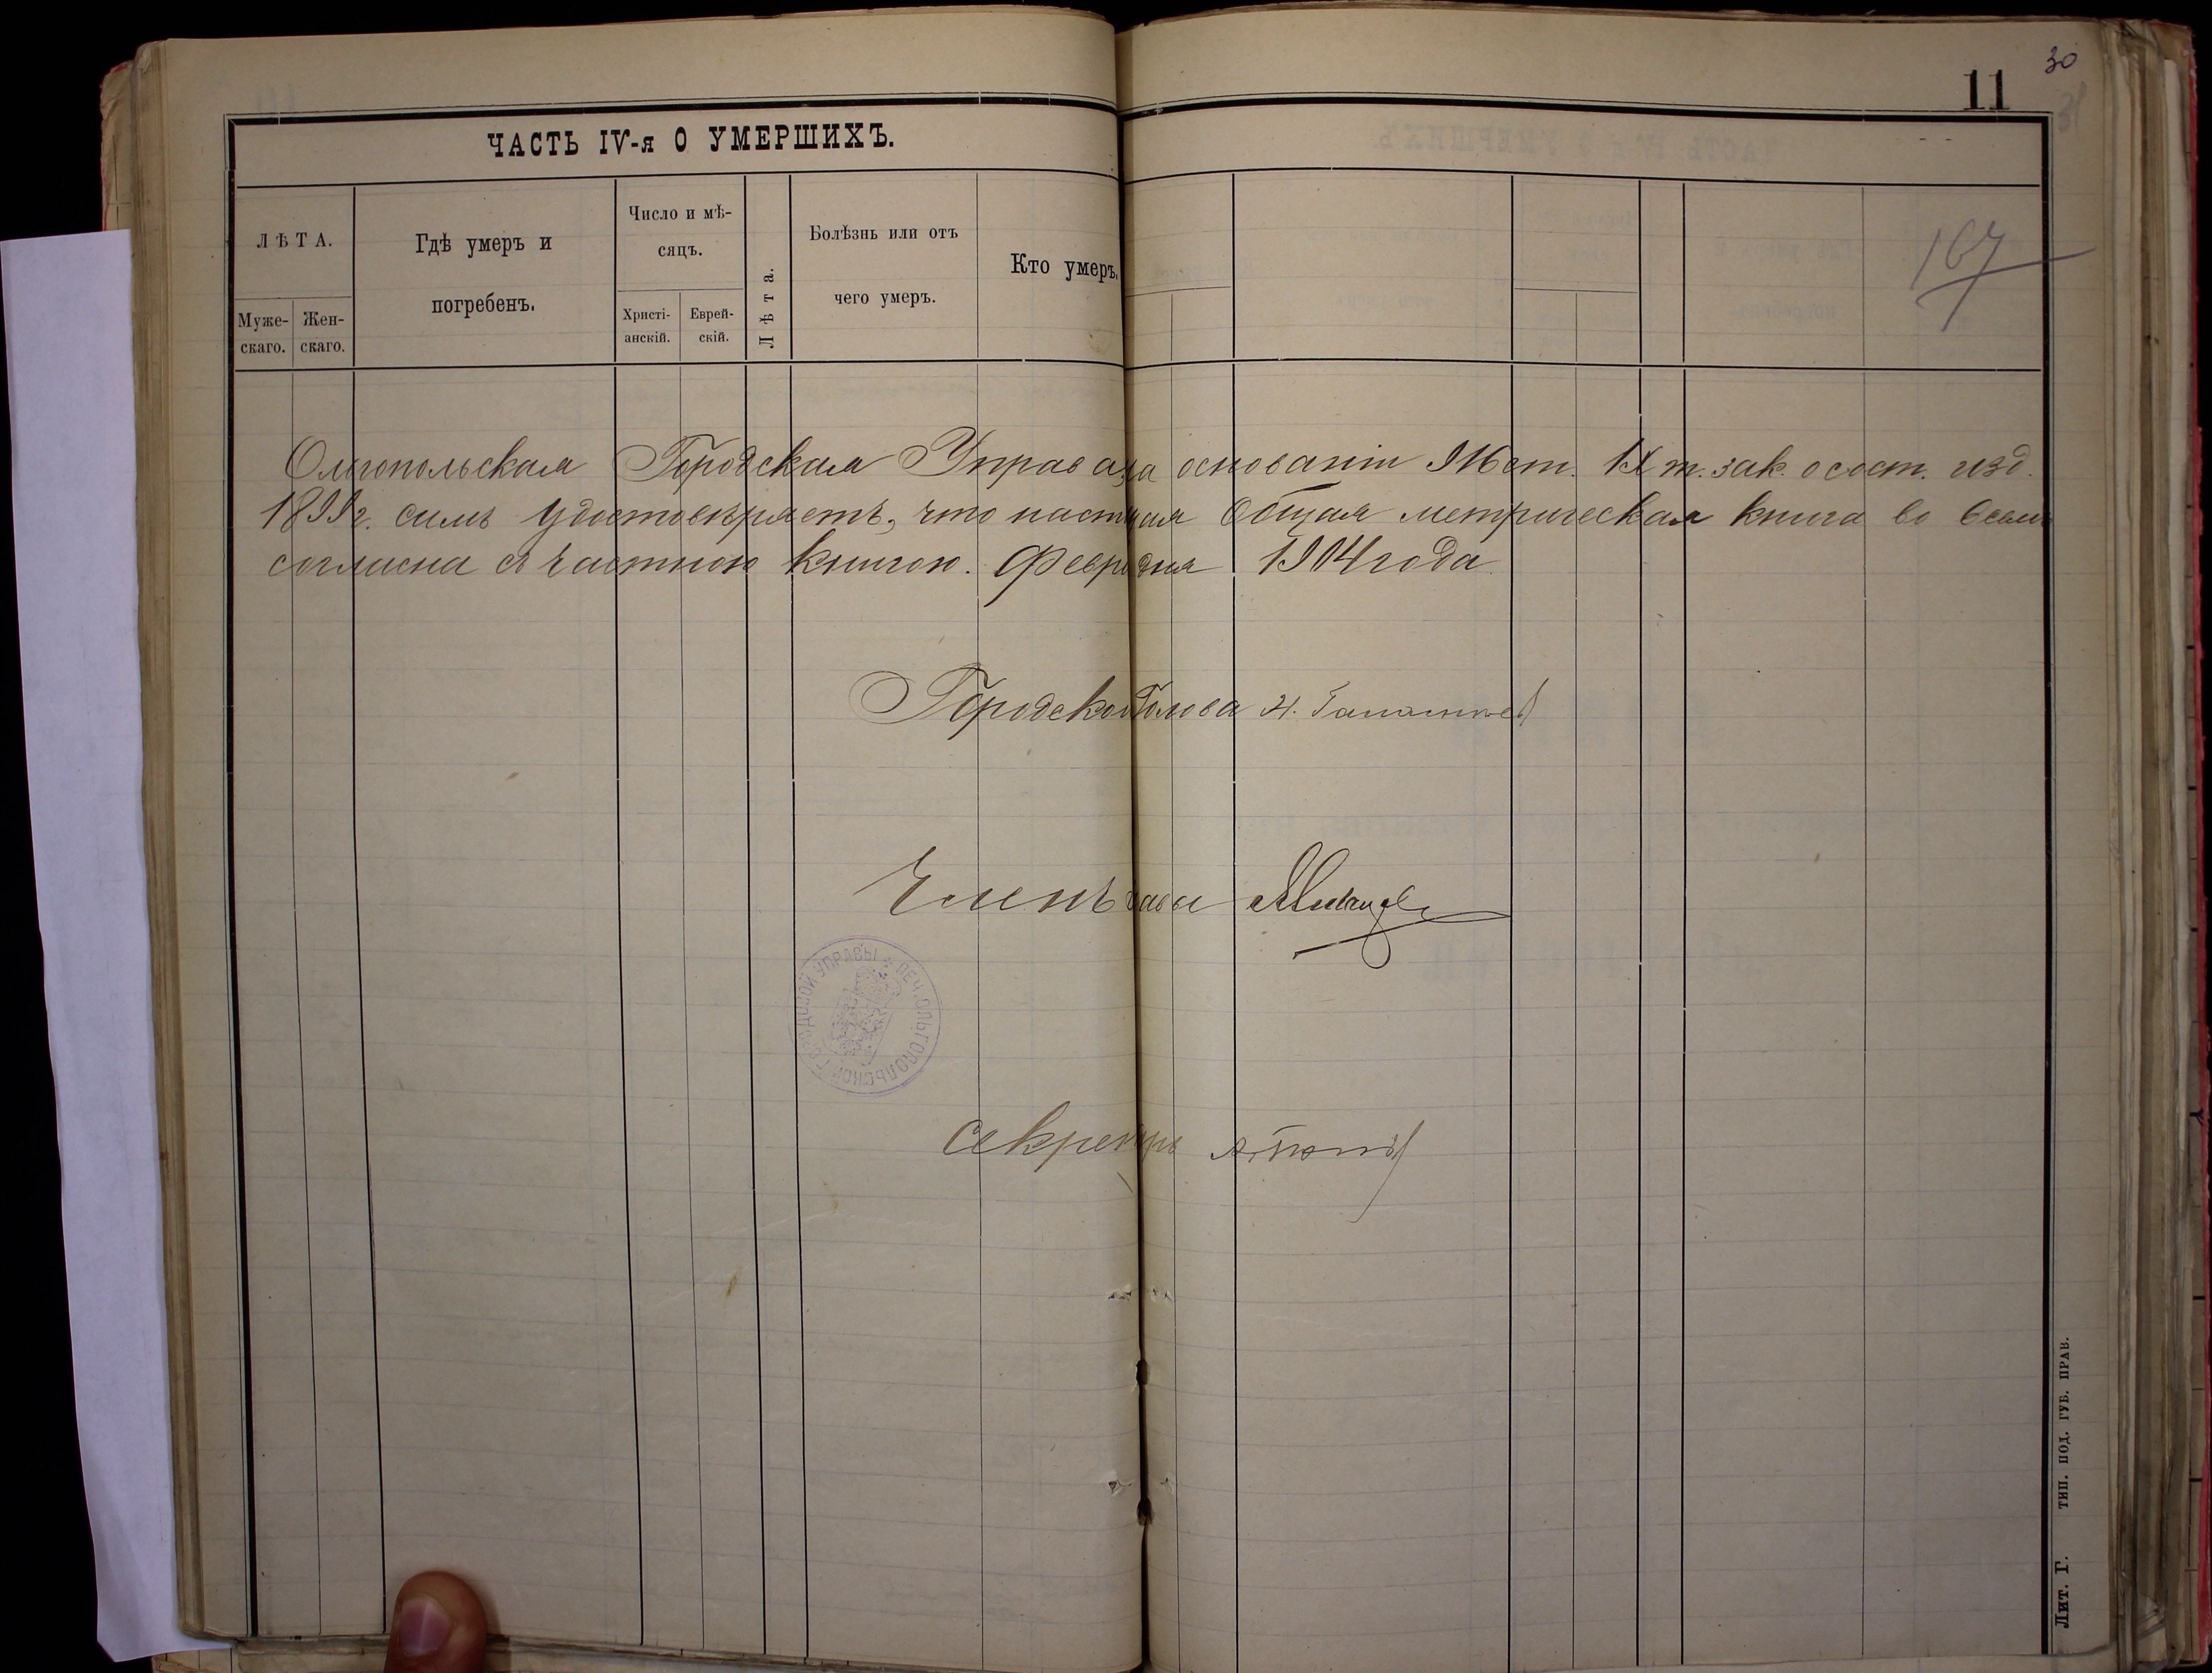 30
11
31
ЧАСТЬ IV-я О УМЕРШИХЪ.
ЛѢТА.
Муже-
скаго.
Жен-
скаго.
Гдѣ умеръ и
погребенъ.
Число и мѣ-
сяцъ.
Христі-
анскій.
Еврей-
скій.
Лѣта.
Болѣзнь или отъ
чего умеръ.
Кто умеръ.
167
Ольгопольская Городская Управа на основаніи 916 ст. IX т. зак. о сост. изд.
1899 г. симъ удостовѣряетъ, что наст щая Общая метрическая книга во всемъ
согласна съ частною книгою. Февр дня 1904 года
Городско Голова Н.
Членъ равы
ПЕЧ. ОЛЬГОПОЛЬСКОЙ ГОРОДСКОЙ УПРАВЫ
Секретрь
Лит. Г. ТИП. ПОД. ГУБ. ПРАВ.